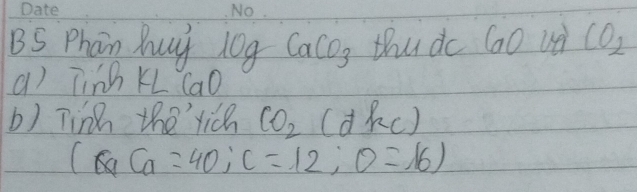 Date No
B5 Phân huỷ 10g CaCO3 thu dc CaO và CO2
a) Tính KL CaO
b) Tính thể tích CO2 (đkc)
(Ca = 40; C = 12; O = 16)